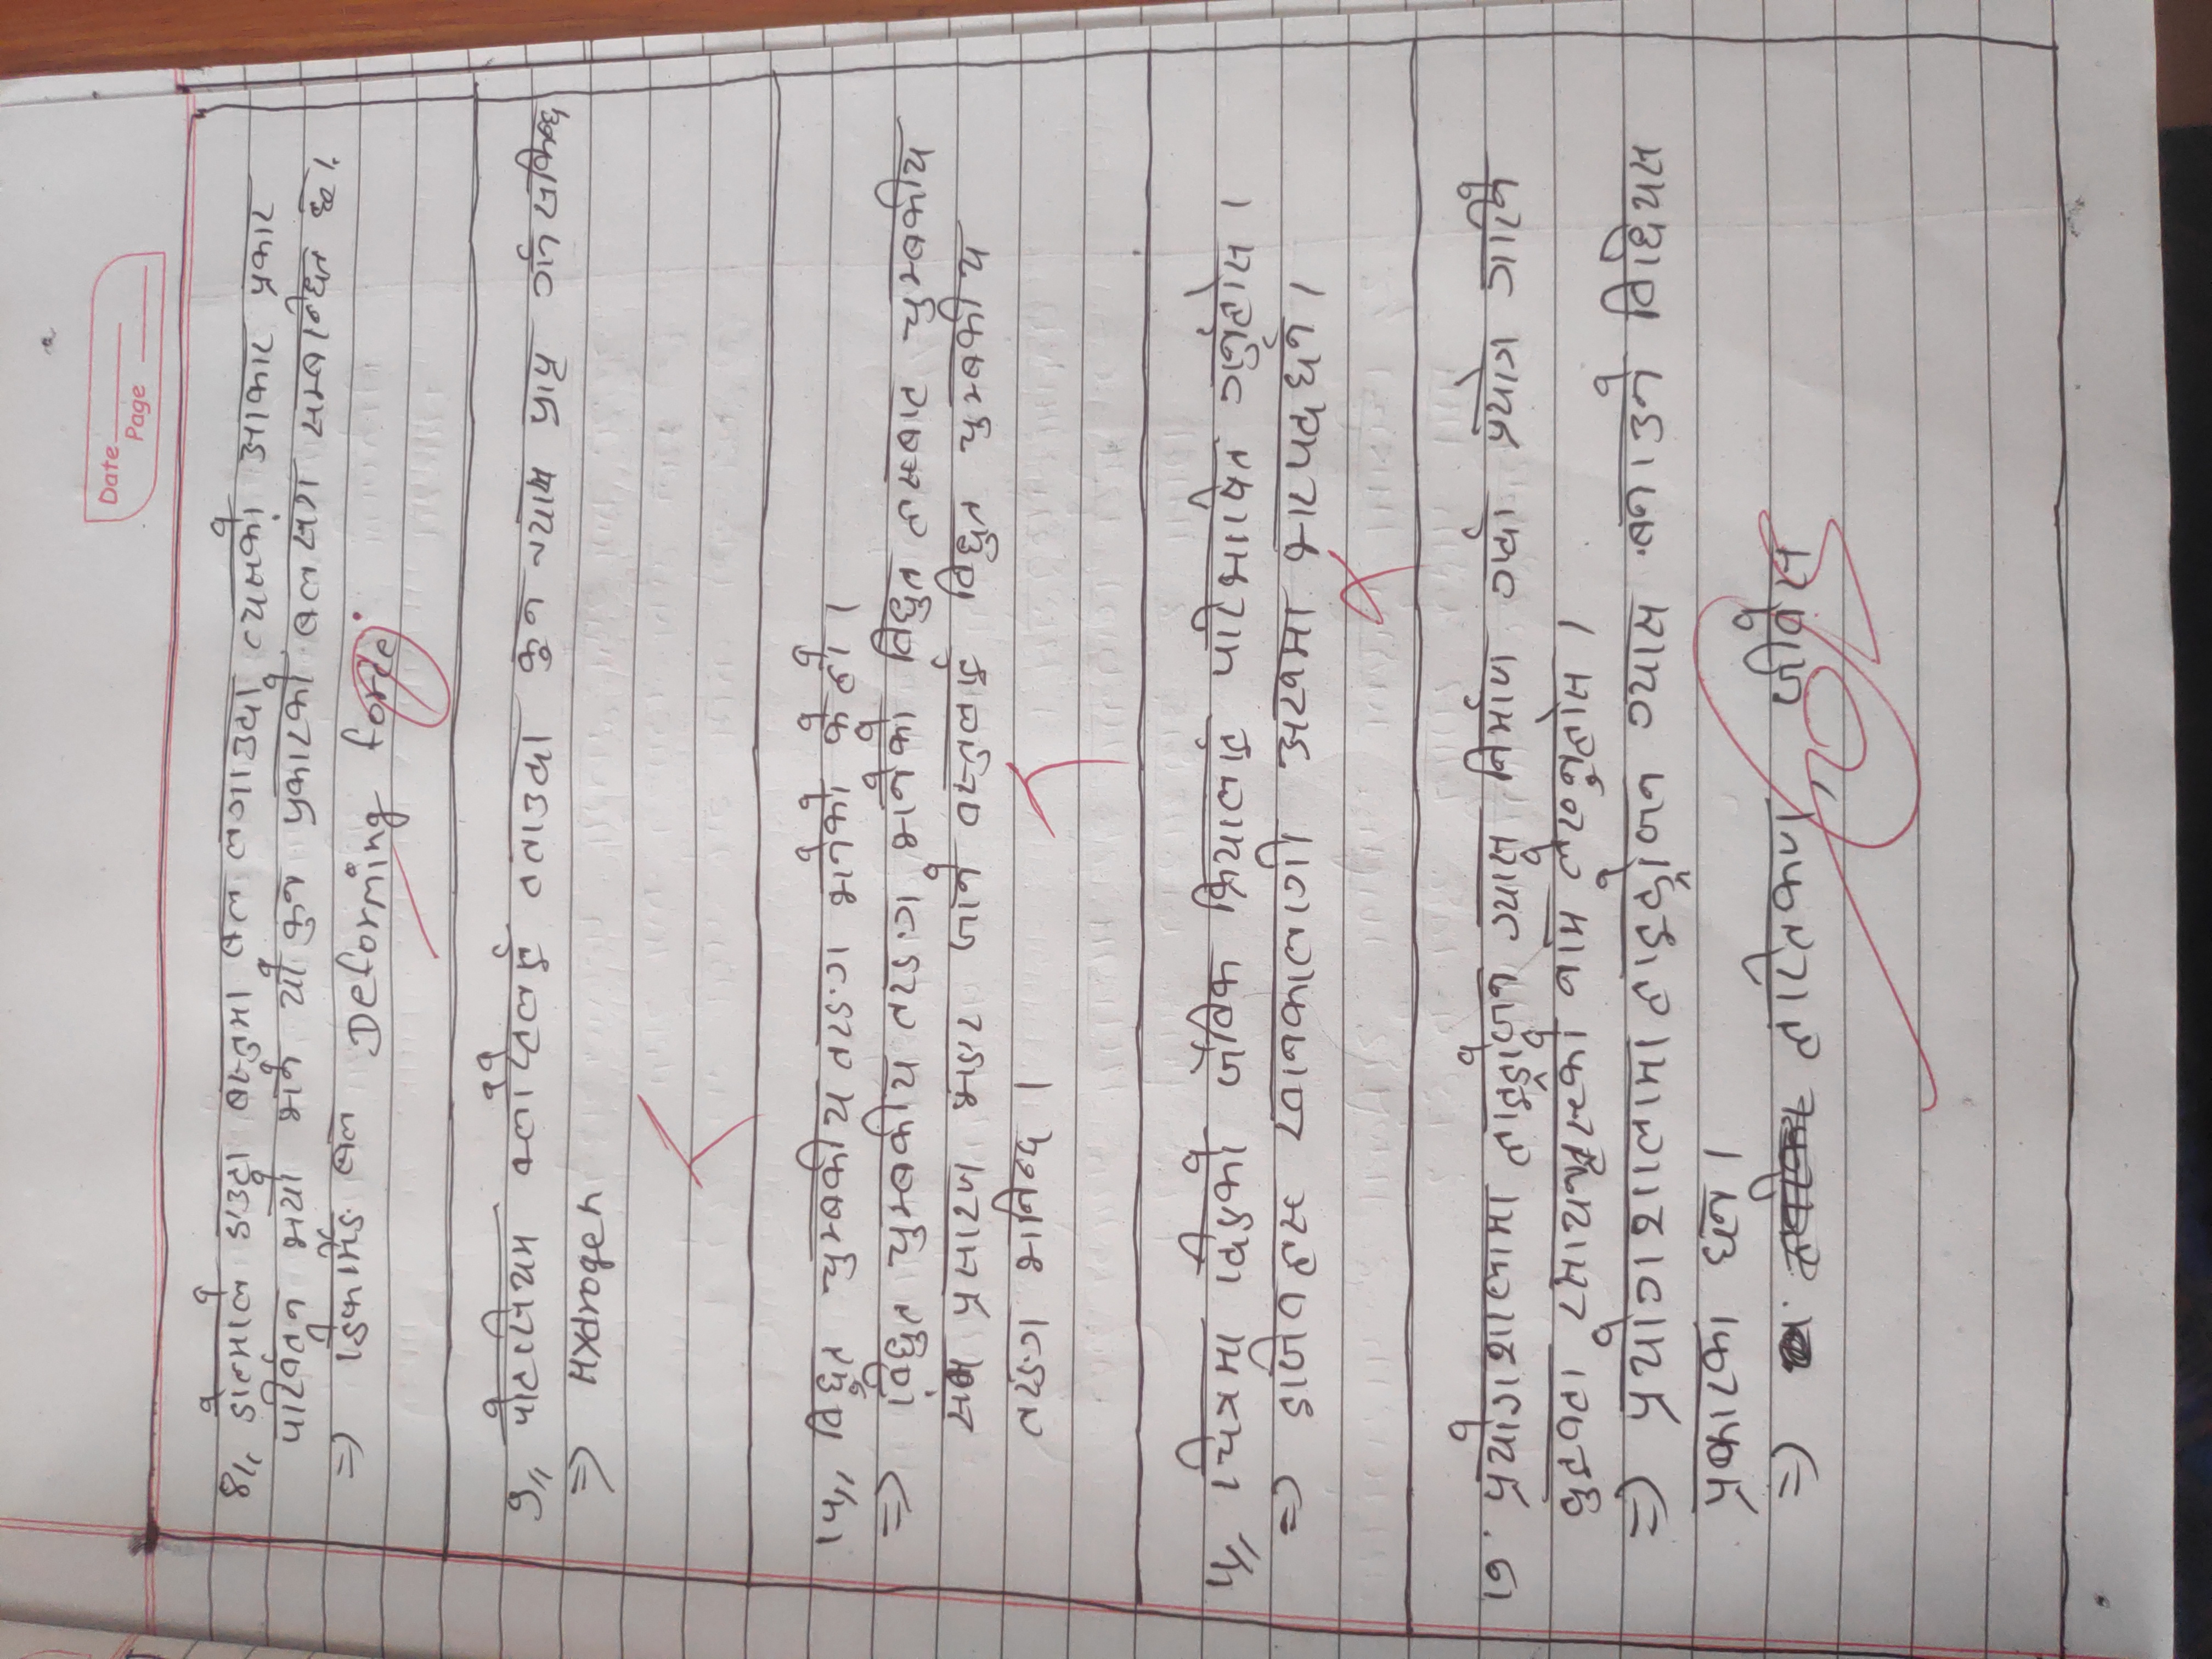 Date
Page
४,, डोल्माले डाउटा बस्तुमा बल लगाउदा त्यसको आकार प्रकार
परिर्वतन भयो भने यो कुन प्रकारको बल संग सम्बन्धित छ।
=) डिफर्मिङ बल Deforming force
७,, पोटासियम क्लोरेटलाई तताउदा कुन ग्यास प्राप्त गर्न सकिन्छ
=) Hydrogen
१५,, विधुत चुम्बकीय तरङग भनेको के हो ।
=) विधुत चुम्बकीय तरङग भनेको विधुत हरूबाट चुम्बकीय
प्रसारण भएर जाने वस्तुलाई विधुत चुम्बकीय
तरङग भनिन्द ।
५,, चित्रमा दिएको जैविक क्रियालाई परिभाषित गर्नुहोस ।
=) डाजिवहरू खानकालागी
१७ प्रयोगशालामा हाइड्रोजन ग्यास निर्माण गर्दा प्रयोग गरिने
दुइवटा रसायनहरूको नाम लेख्नुहोस ।
=) प्रयोगशालामा हाइड्रोजन ग्यास बनाउने विधियस
प्रकारका छन ।
=) हारितकण, जीवेस